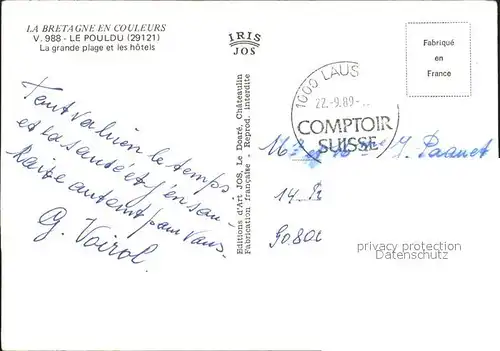 LA BRETAGNE EN COULEURS
V. 988 - LE POULDU (29121)
La grande plage et les hôtels
IRIS
JOS
Fabriqué
en
France
1000 LAUS
22.-9.89-
COMPTOIR
SUISSE
Tout va bien le temps
et la santé et j'en sou-
haite autant pour vous.
G. Voirol.
Editions d'Art JOS, Le Doaré, Châteaulin
Fabrication française - Reprod. interdite
Mr et Mme J. Paquet
14
90800
privacy protection
Datenschutz